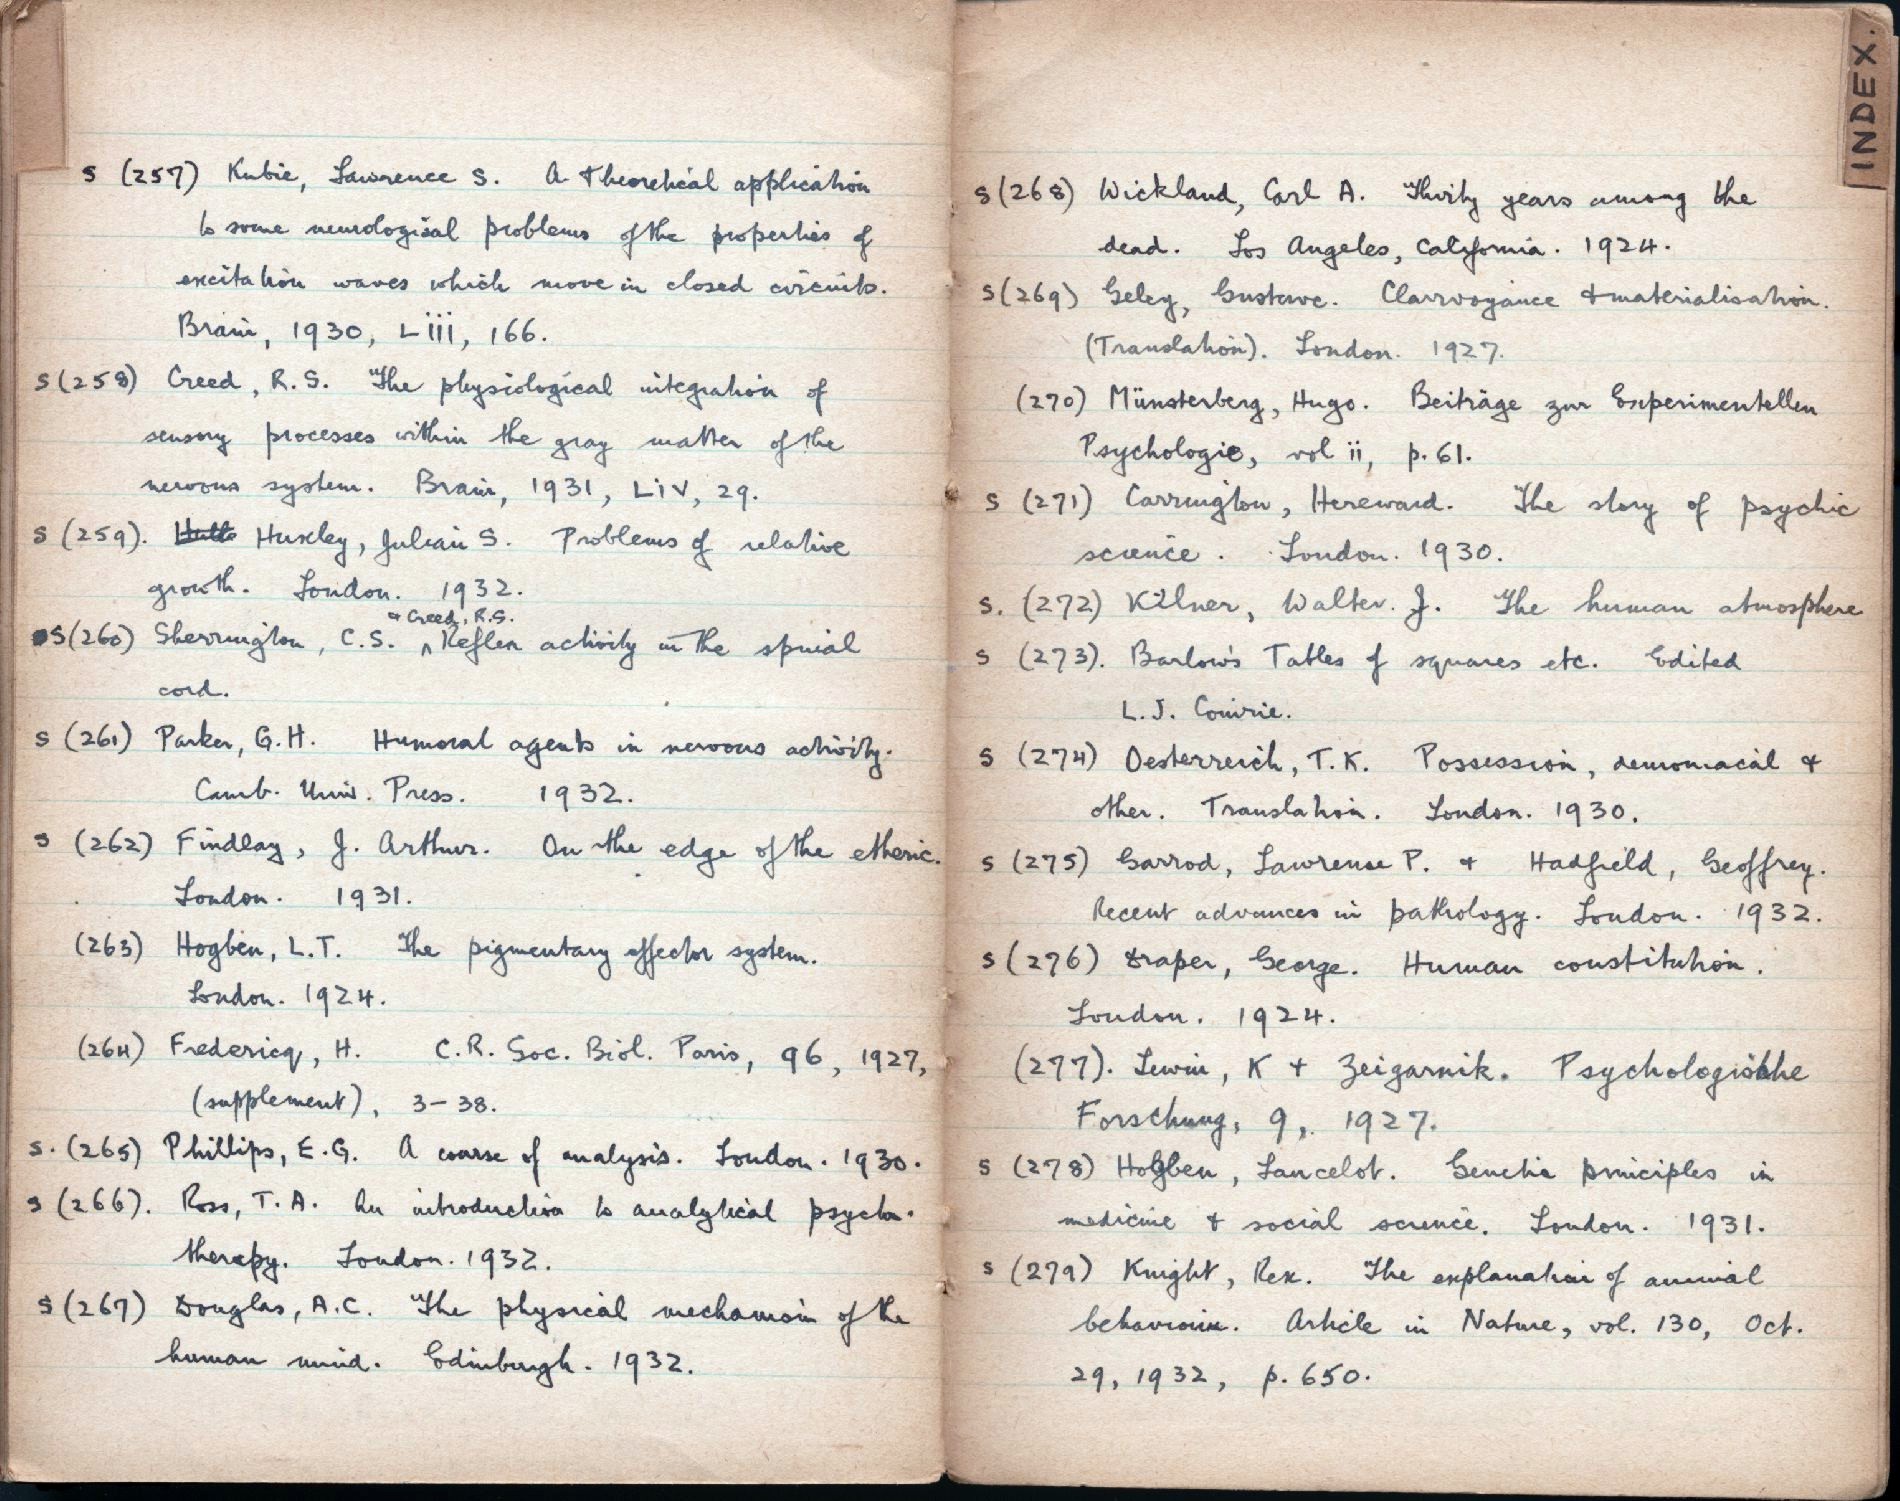 S (257) Kubie, Lawrence S. A theoretical application
to some neurological problems of the properties of
excitation waves which move in closed circuits.
Brain, 1930, Liii, 166.
S (258) Creed, R.S. The physiological integration of
sensory processes within the gray matter of the
nervous system. Brain, 1931, LiV, 29.
S (259). Huxley, Julian S. Problems of relative
growth. London. 1932.
& Creed, R.S.
S (260) Sherrington, C.S. ^ Reflex activity in the spinal
cord.
S (261) Parker, G.H. Humoral agents in nervous activity.
Camb. Univ. Press. 1932.
S (262) Findlay, J. Arthur. On the edge of the etheric.
London. 1931.
(263) Hogben, L.T. The pigmentary effector system.
London. 1924.
(264) Fredericq, H. C.R. Soc. Biol. Paris, 96, 1927,
(supplement), 3-38.
S. (265) Phillips, E.G. A course of analysis. London. 1930.
S (266). Ross, T.A. An introduction to analytical psycho-
therapy. London. 1932.
S (267) Douglas, A.C. The physical mechanism of the
human mind. Edinburgh. 1932.
INDEX.
S (268) Wickland, Carl A. Thirty years among the
dead. Los Angeles, California. 1924.
S (269) Geley, Gustave. Clairvoyance & materialisation.
(Translation). London. 1927.
(270) Münsterberg, Hugo. Beiträge zur Experimentellen
Psychologie, vol ii, p. 61.
S (271) Carrington, Hereward. The story of psychic
science. London. 1930.
S. (272) Kilner, Walter. J. The human atmosphere
S (273). Barlow's Tables of squares etc. Edited
L.J. Comrie.
S (274) Oesterreich, T.K. Possession, demoniacal &
other. Translation. London. 1930.
S (275) Garrod, Lawrence P. & Hadfield, Geoffrey.
Recent advances in pathology. London. 1932.
S (276) Draper, George. Human constitution.
London. 1924.
(277). Lewin, K & Zeigarnik. Psychologische
Forschung, 9, 1927.
S (278) Hogben, Lancelot. Genetic principles in
medicine & social science. London. 1931.
S (279) Knight, Rex. The explanation of animal
behaviour. Article in Nature, vol. 130, Oct.
29, 1932, p. 650.